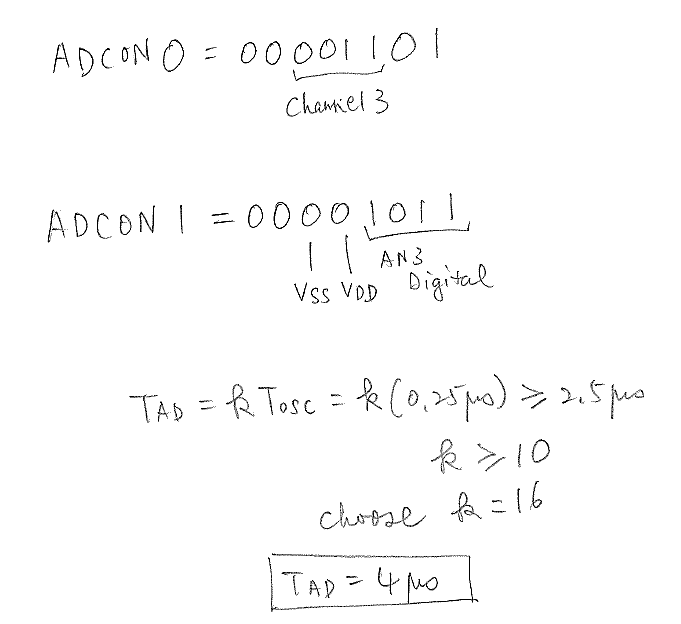 ADCON0 = 00001101
Channel 3
ADCON1 = 00001011
VSS VDD AN3 Digital
TAD = k Tosc = k(0.25μs) ≥ 2.5μs
k ≥ 10
choose k = 16
TAD = 4μs